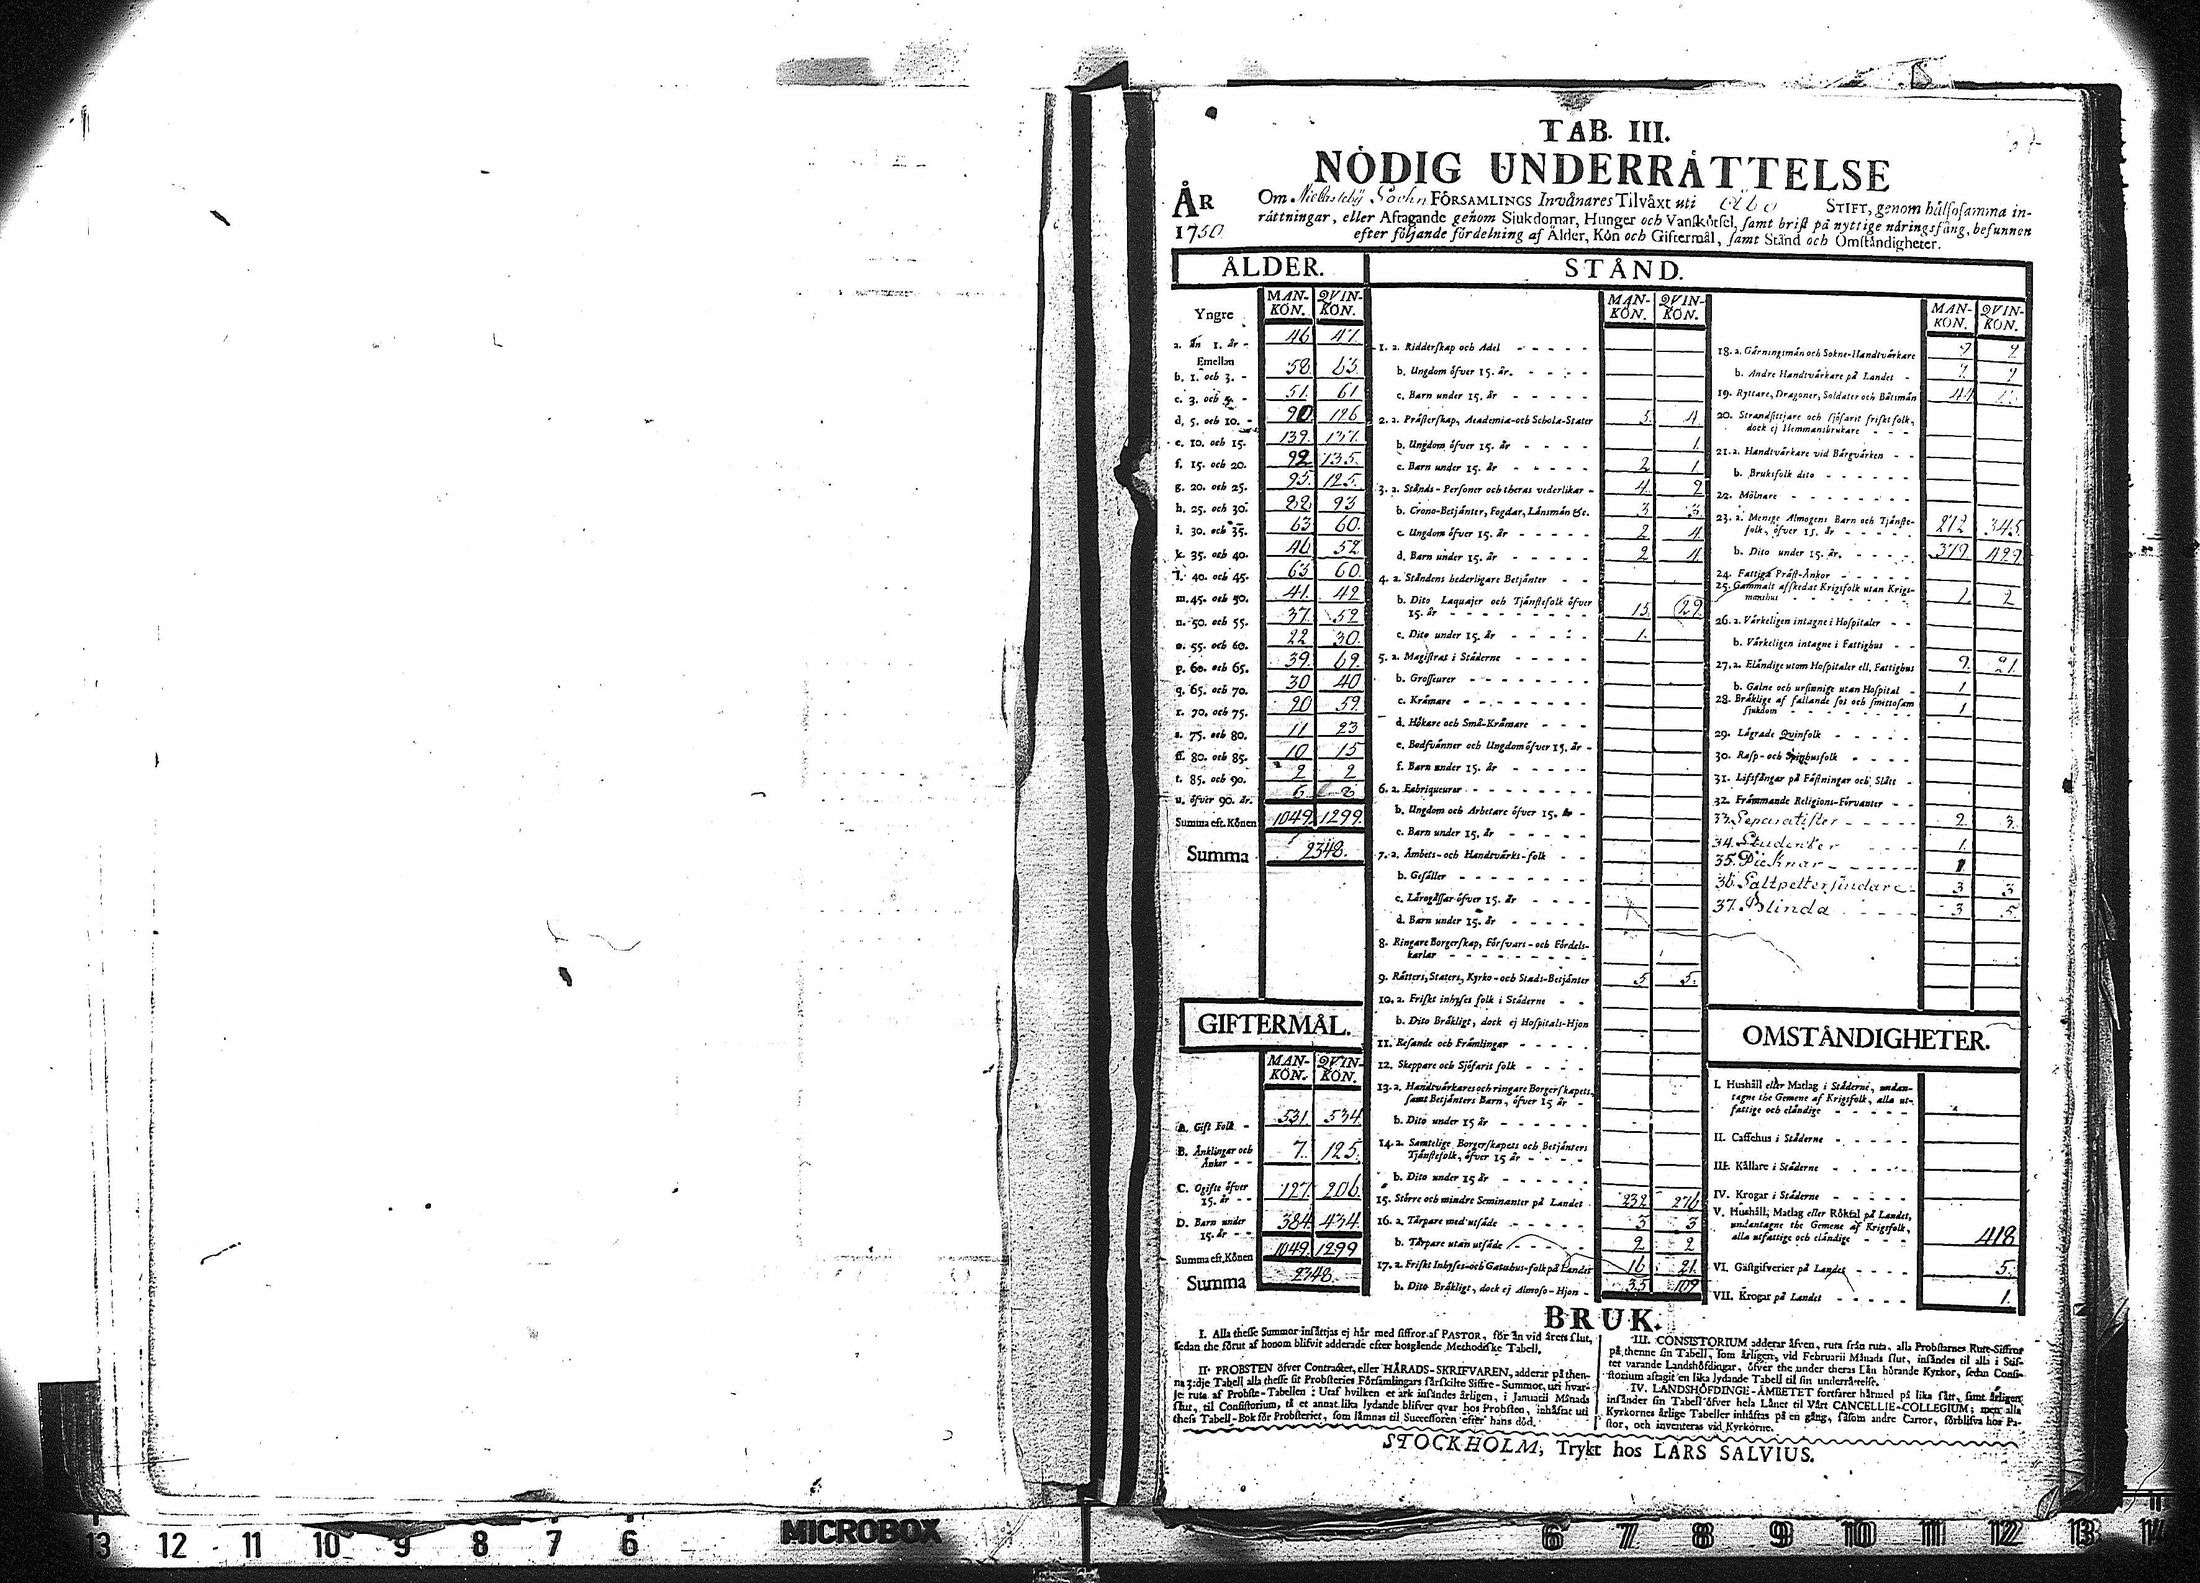 TAB. III.
NÖDIG UNDERRÄTTELSE
ÅR
1750
Om Sochn FÖRSAMLINGS Invånares Tilväxt uti Åbo STIFT, genom hälsosamma in-
rättningar, eller Aftagande genom Sjukdomar, Hunger och Vanskötsel, samt brist på nyttige näringsfång, befunnen
efter följande fördelning af Ålder, Kön och Giftermål, samt Stånd och Omständigheter.
ÅLDER.
Yngre MAN-KÖN. QVIN-KÖN.
a. än 1. år - 46 47.
Emellan
b. 1. och 3. - 58. 63.
c. 3. och 5. - 51. 61
d. 5. och 10. - 90 126
e. 10. och 15. 139. 137.
f. 15. och 20. 92 135.
g. 20. och 25. 95. 125.
h. 25. och 30. 88. 93
i. 30. och 35. 63 60.
k. 35. och 40. 46 52
l. 40. och 45. 63 60.
m. 45. och 50. 41. 42
n. 50. och 55. 37. 52
o. 55. och 60. 22 30.
p. 60. och 65. 39. 69.
q. 65. och 70. 30 40
r. 70. och 75. 20 59.
s. 75. och 80. 11 23
ſſ. 80. och 85. 10 15
t. 85. och 90. 2 2
u. öfver 90. år. 6. 8
Summa eft. Könen 1049. 1299.
Summa 2348.
GIFTERMÅL.
MAN-KÖN. QVIN-KÖN.
A. Gift Folk - 531. 534
B. Änklingar och
Änkor - - 7. 125.
C. Ogifte öfver
15. år - - 127. 206.
D. Barn under
15. år - - 384 434.
Summa eft. Könen 1049 1299
Summa 2348.
STÅND.
MAN-KÖN. QVIN-KÖN.
1. a. Ridderskap och Adel - - - - -
b. Ungdom öfver 15. år. - - - -
c. Barn under 15. år - - - -
2. a. Prästerskap, Academiæ-och Schola-Stater 5. 4.
b. Ungdom öfver 15. år - - - - 1.
c. Barn under 15. år - - - - 2 1
3. a. Stånds-Personer och theras vederlikar - 4. 2
b. Crono-Betjänter, Fogdar, Länsmän &c. 3 3.
c. Ungdom öfver 15. år - - - - 2 4
d. Barn under 15. år - - - - 2 4
4. a. Ståndens hederligare Betjänter - -
b. Dito Laquajer och Tjänstefolk öfver
15. år - - - - - - - - 15. 29.
c. Dito under 15. år - - - - 1.
5. a. Magistrat i Städerne - - - - -
b. Grosseurer - - - - - - -
c. Krämare - - - - - - - -
d. Hökare och Små-Krämare - - -
e. Bodsvänner och Ungdom öfver 15. år -
f. Barn under 15. år - - - -
6. a. Fabriqueurer - - - - - - - -
b. Ungdom och Arbetare öfver 15. år -
c. Barn under 15. år - - - - -
7. a. Ämbets-och Handtvärks-folk - -
b. Gesäller - - - - - - - -
c. Lärogåssar öfver 15. år - - - -
d. Barn under 15. år - - - - -
8. Ringare Borgerskap, Försvars-och Fördels-
karlar - - - - - - - -
9. Rätters, Staters, Kyrko-och Stads-Betjänter 5 5.
10. a. Friskt inhyses folk i Städerne - -
b. Dito Bräkligt, dock ej Hospitals-Hjon
11. Resande och Främlingar - - - - -
12. Skeppare och Sjöfarit folk - - - -
13. a. Handtvärkares och ringare Borgerskapets,
samt Betjänters Barn, öfver 15 år -
b. Dito under 15 år - - - - -
14. a. Samtelige Borgerskapets och Betjänters
Tjänstefolk, öfver 15 år - - - -
b. Dito under 15 år - - - - -
15. Större och mindre Seminanter på Landet 232 276
16. a. Tårpare med utsäde - - - - - 3 3
b. Tårpare utan utsäde - - - - 2 2
17. a. Friskt Inhyses-och Gatuhus-folk på Landet 16 21.
b. Dito Bräkligt, dock ej Almoso-Hjon - 35 109
MAN-KÖN. QVIN-KÖN.
18. a. Gärningsmän och Sokne-Handtvärkare 9 9
b. Andre Handtvärkare på Landet - 7. 7
19. Ryttare, Dragoner, Soldater och Båtsmän 44
20. Strandsittjare och sjöfarit friskt folk,
dock ej Hemmansbrukare - - -
21. a. Handtvärkare vid Bärgvärken - -
b. Bruksfolk dito - - - - - -
22. Mölnare - - - - - - - -
23. a. Menige Almogens Barn och Tjänste-
folk, öfver 15. år - - - - - 272 345.
b. Dito under 15. år. - - - - 379. 429.
24. Fattiga Präst-Änkor - - - - -
25. Gammalt afskedat Krigsfolk utan Krigs-
manshus - - - - - - - 1. 2
26. a. Värkeligen intagne i Hospitaler - -
b. Värkeligen intagne i Fattighus - -
27. a. Eländige utom Hospitaler ell. Fattighus 9. 21.
b. Galne och ursinnige utan Hospital - 1
28. Bräklige af fallande sot och smittosam
sjukdom - - - - - - - 1
29. Lägrade Qvinfolk - - - - -
30. Rasp-och Spinhusfolk - - - -
31. Lifsfångar på Fästningar och Slått -
32. Främmande Religions-Förvanter - -
33. Separatister - - - - 2. 3.
34. Studenter - - - - 1.
35. - - - - 1
36. Saltpettersiudare - 3 3
37. Blinda - - - - 3 5
OMSTÄNDIGHETER.
I. Hushåll eller Matlag i Städerne, undan-
tagne the Gemene af Krigsfolk, alla ut-
fattige och eländige - - - - -
II. Caffehus i Städerne - - - - -
III. Källare i Städerne - - - - -
IV. Krogar i Städerne - - - - -
V. Hushåll, Matlag eller Röktal på Landet,
undantagne the Gemene af Krigsfolk,
alla utfattige och eländige - - - 418
VI. Gästgifverier på Landet - - - - 5.
VII. Krogar på Landet - - - - - 1.
BRUK.
I. Alla thesse Summor insättjas ej här med siffror af PASTOR, för än vid årets slut,
sedan the förut af honom blifvit adderade efter hosgående Methodiske Tabell.
II. PROBSTEN öfver Contractet, eller HÄRADS-SKRIFVAREN, adderar på then-
na 3:dje Tabell alla thesse sit Probsteries Församlingars särskilte Siffre-Summor, uti hvar-
je ruta af Probste-Tabellen: Utaf hvilken et ark insändes årligen, i Januarii Månads
slut, til Consistorium, tå et annat lika lydande blifver qvar hos Probsten, inhäftat uti
thess Tabell-Bok för Probsteriet, som lämnas til Successoren efter hans död.
III. CONSISTORIUM adderar äfven, ruta från ruta, alla Probstarnes Rute-Siffror
på thenne sin Tabell, som årligen, vid Februarii Månads slut, insändes til alla i Stif-
tet varande Landshöfdingar, öfver the under theras Län hörande Kyrkor, sedan Consi-
storium aftagit en lika lydande Tabell til sin underrättelse.
IV. LANDSHÖFDINGE-ÄMBETET fortfarer härmed på lika sätt, samt årligen
insänder sin Tabell öfver hela Länet til Vårt CANCELLIE-COLLEGIUM; men alla
Kyrkornes årlige Tabeller inhäftas på en gång, såsom andre Cartor, förblifva hos Pa-
stor, och inventeras vid Kyrkorne.
STOCKHOLM, Trykt hos LARS SALVIUS.
13 12 11 10 9 8 7 6 MICROBOX 6 7 8 9 10 11 12 13 14